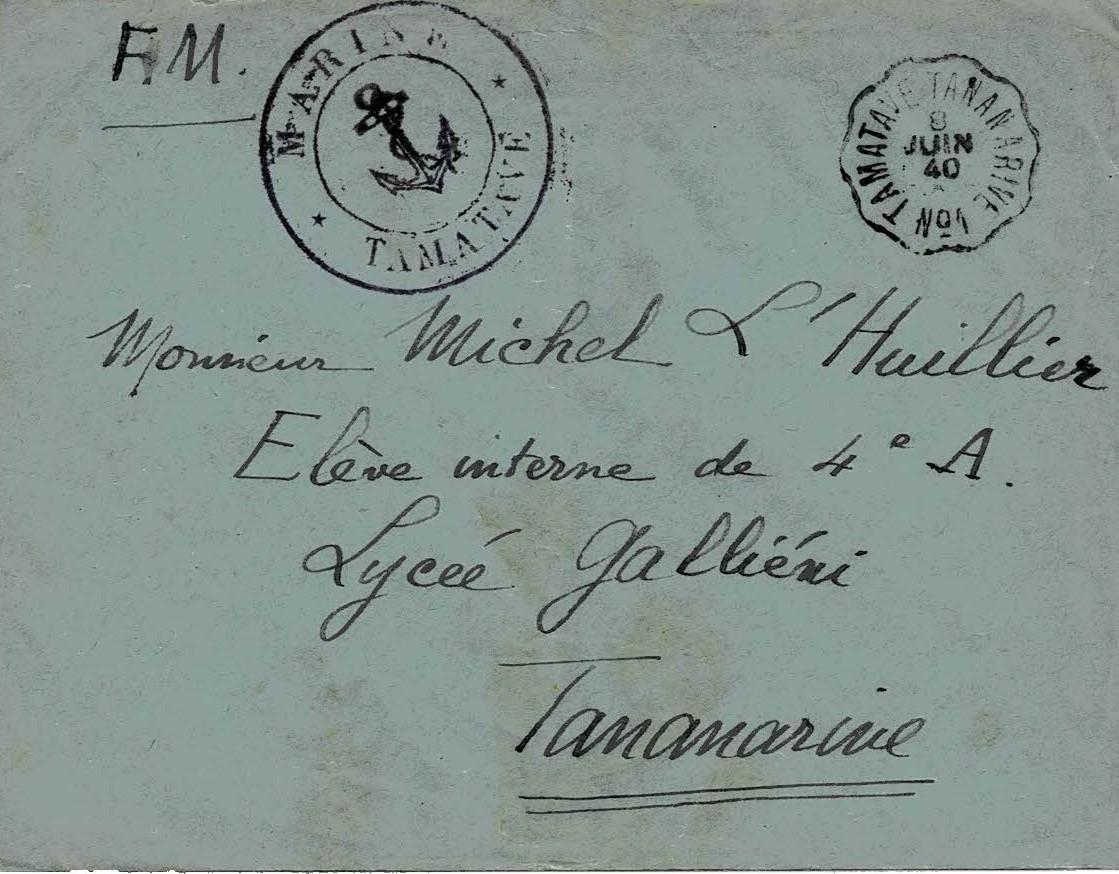 F.M.
MARINE
TAMATAVE
TAMATAVE TANANARIVE
8
JUIN
40
Monsieur Michel L'Huillier
Elève interne de 4e A.
Lycée Galliéni
Tananarive